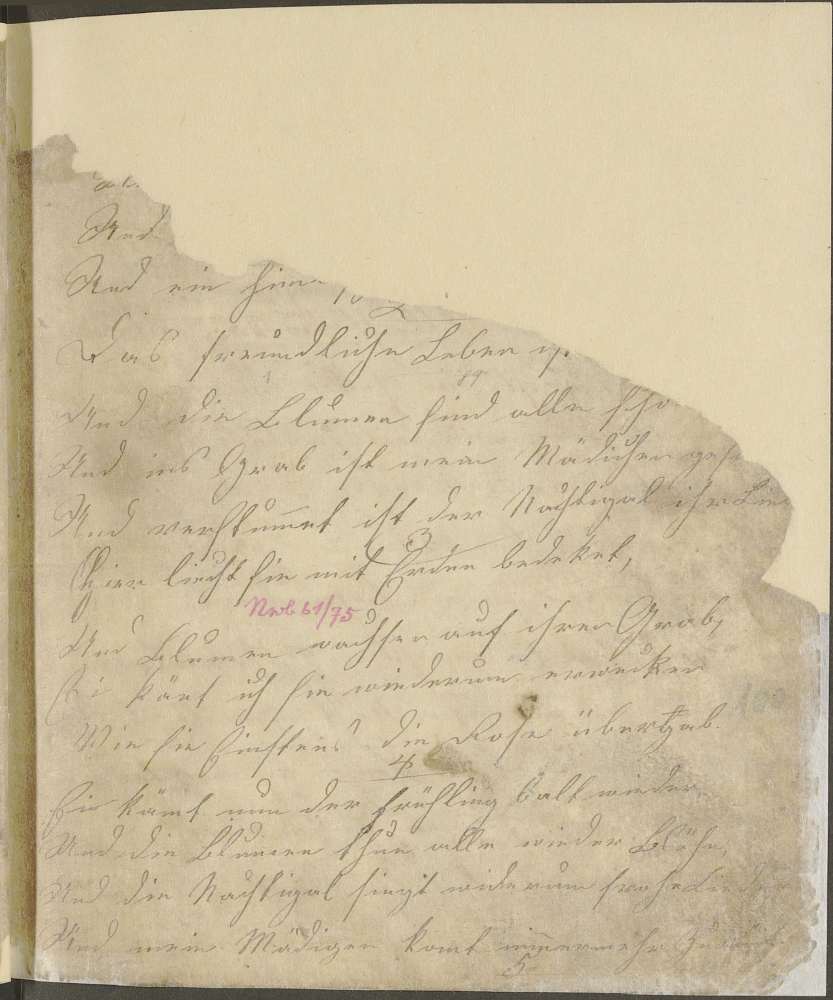 Und
Und ein him
2
Das freundliche Leben
Und die Blumen sind alle scho
Und ins Grab ist mein Mädichen ges
Und verstum̅et ist der Nachtigal ihr Lie
3
Hier liecht sie mit Erden bedeket,
Nrb 61/75
Und Blumen wachsen auf ihren Grab,
könt ich sie wiederum erwecken
Wie sie Einstens die Rose übergab.
4
Eis kömt nun der Frühling balt wieder
Und die Blumen thun alle wieder Blöhn,
Und die Nachtigal singt widerum frohe Lieder
Und mein Mädigen komt im̅ermehr zurück
5